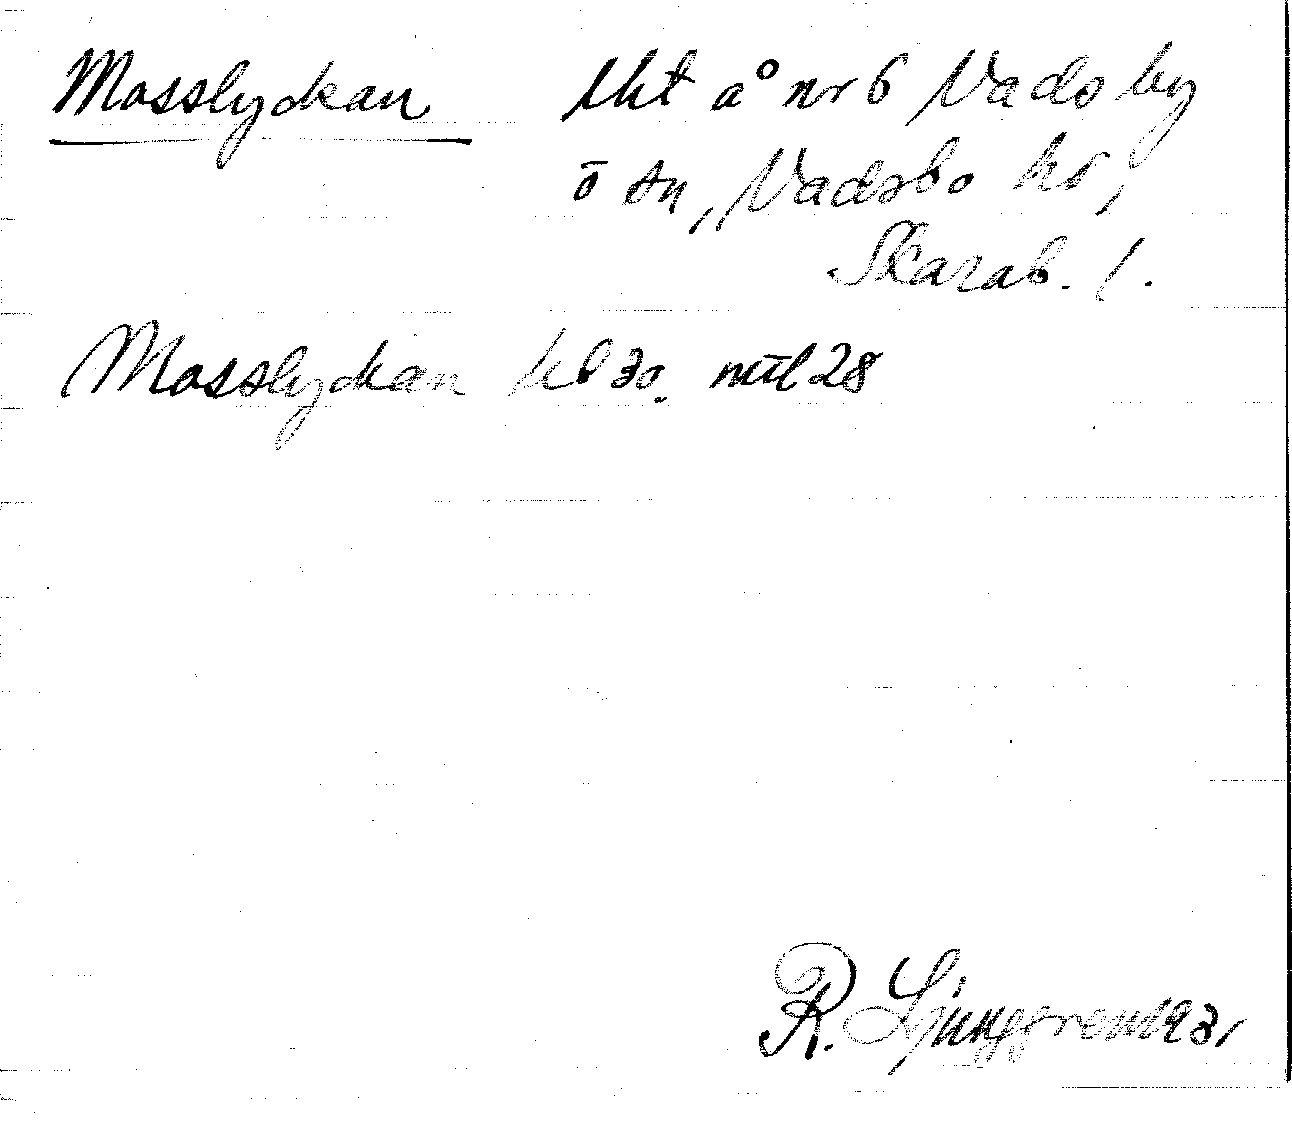 Mosslyckan lht å nr 6 Vadsby
ö sn, Vadsbo hd,
Skarab. l.
Mosslyckan kb 30. mtl 28
R. Ljunggren 1931